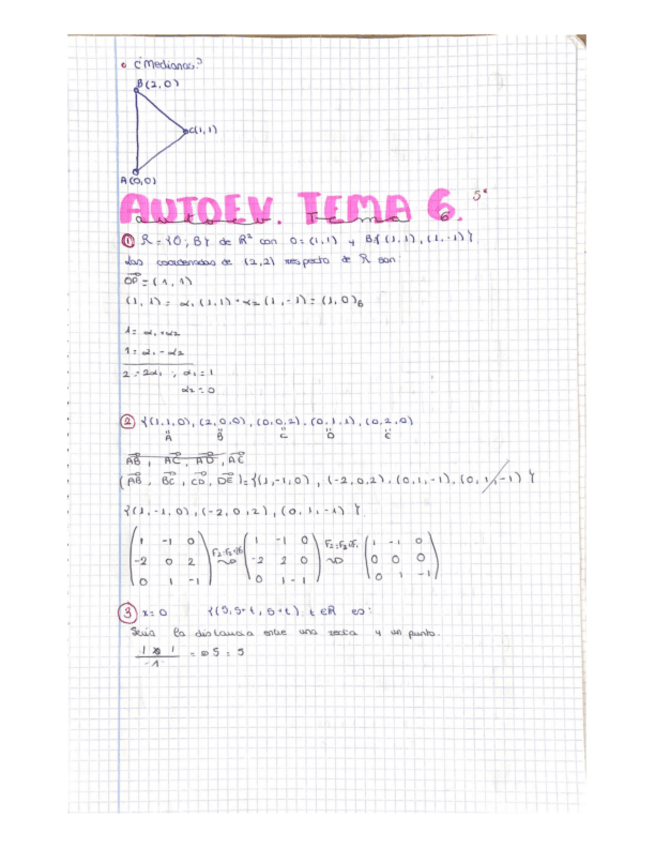 ¿Medianas?
B(2,0)
C(1,1)
A(0,0)
AUTOEV. TEMA 6.
autoev. Tema 6.
① R = {O; B} de R² con O=(1,1) y B{(1,1), (1,-1)}
Las coordenadas de (2,2) respecto de R son:
OP = (1,1)
(1,1) = α₁(1,1) + α₂(1,-1) = (1,0)
1 = α₁ + α₂
1 = α₁ - α₂
2 = 2α₁ ; α₁ = 1
α₂ = 0
② {(1,1,0), (2,0,0), (0,0,2), (0,1,1), (0,2,0)
A B C D E
AB, AC, AD, AE
(AB, BC, CD, DE) = {(1,-1,0), (-2,0,2), (0,1,-1), (0,1,-1)}
{(1,-1,0), (-2,0,2), (0,1,-1)}
1 -1 0 1 -1 0 1 -1 0
-2 0 2 -2 2 0 0 0 0
0 1 -1 0 1 -1 0 1 -1
③ x=0 {(5, 5+t, 5+t), t∈R es:
Sería la distancia entre una recta y un punto.
= 5 = 5